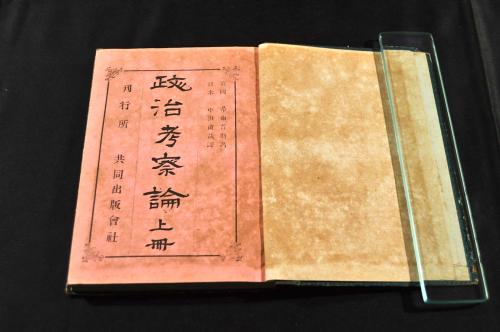 日本
政治考察論上冊
刊行所 共同出版會社